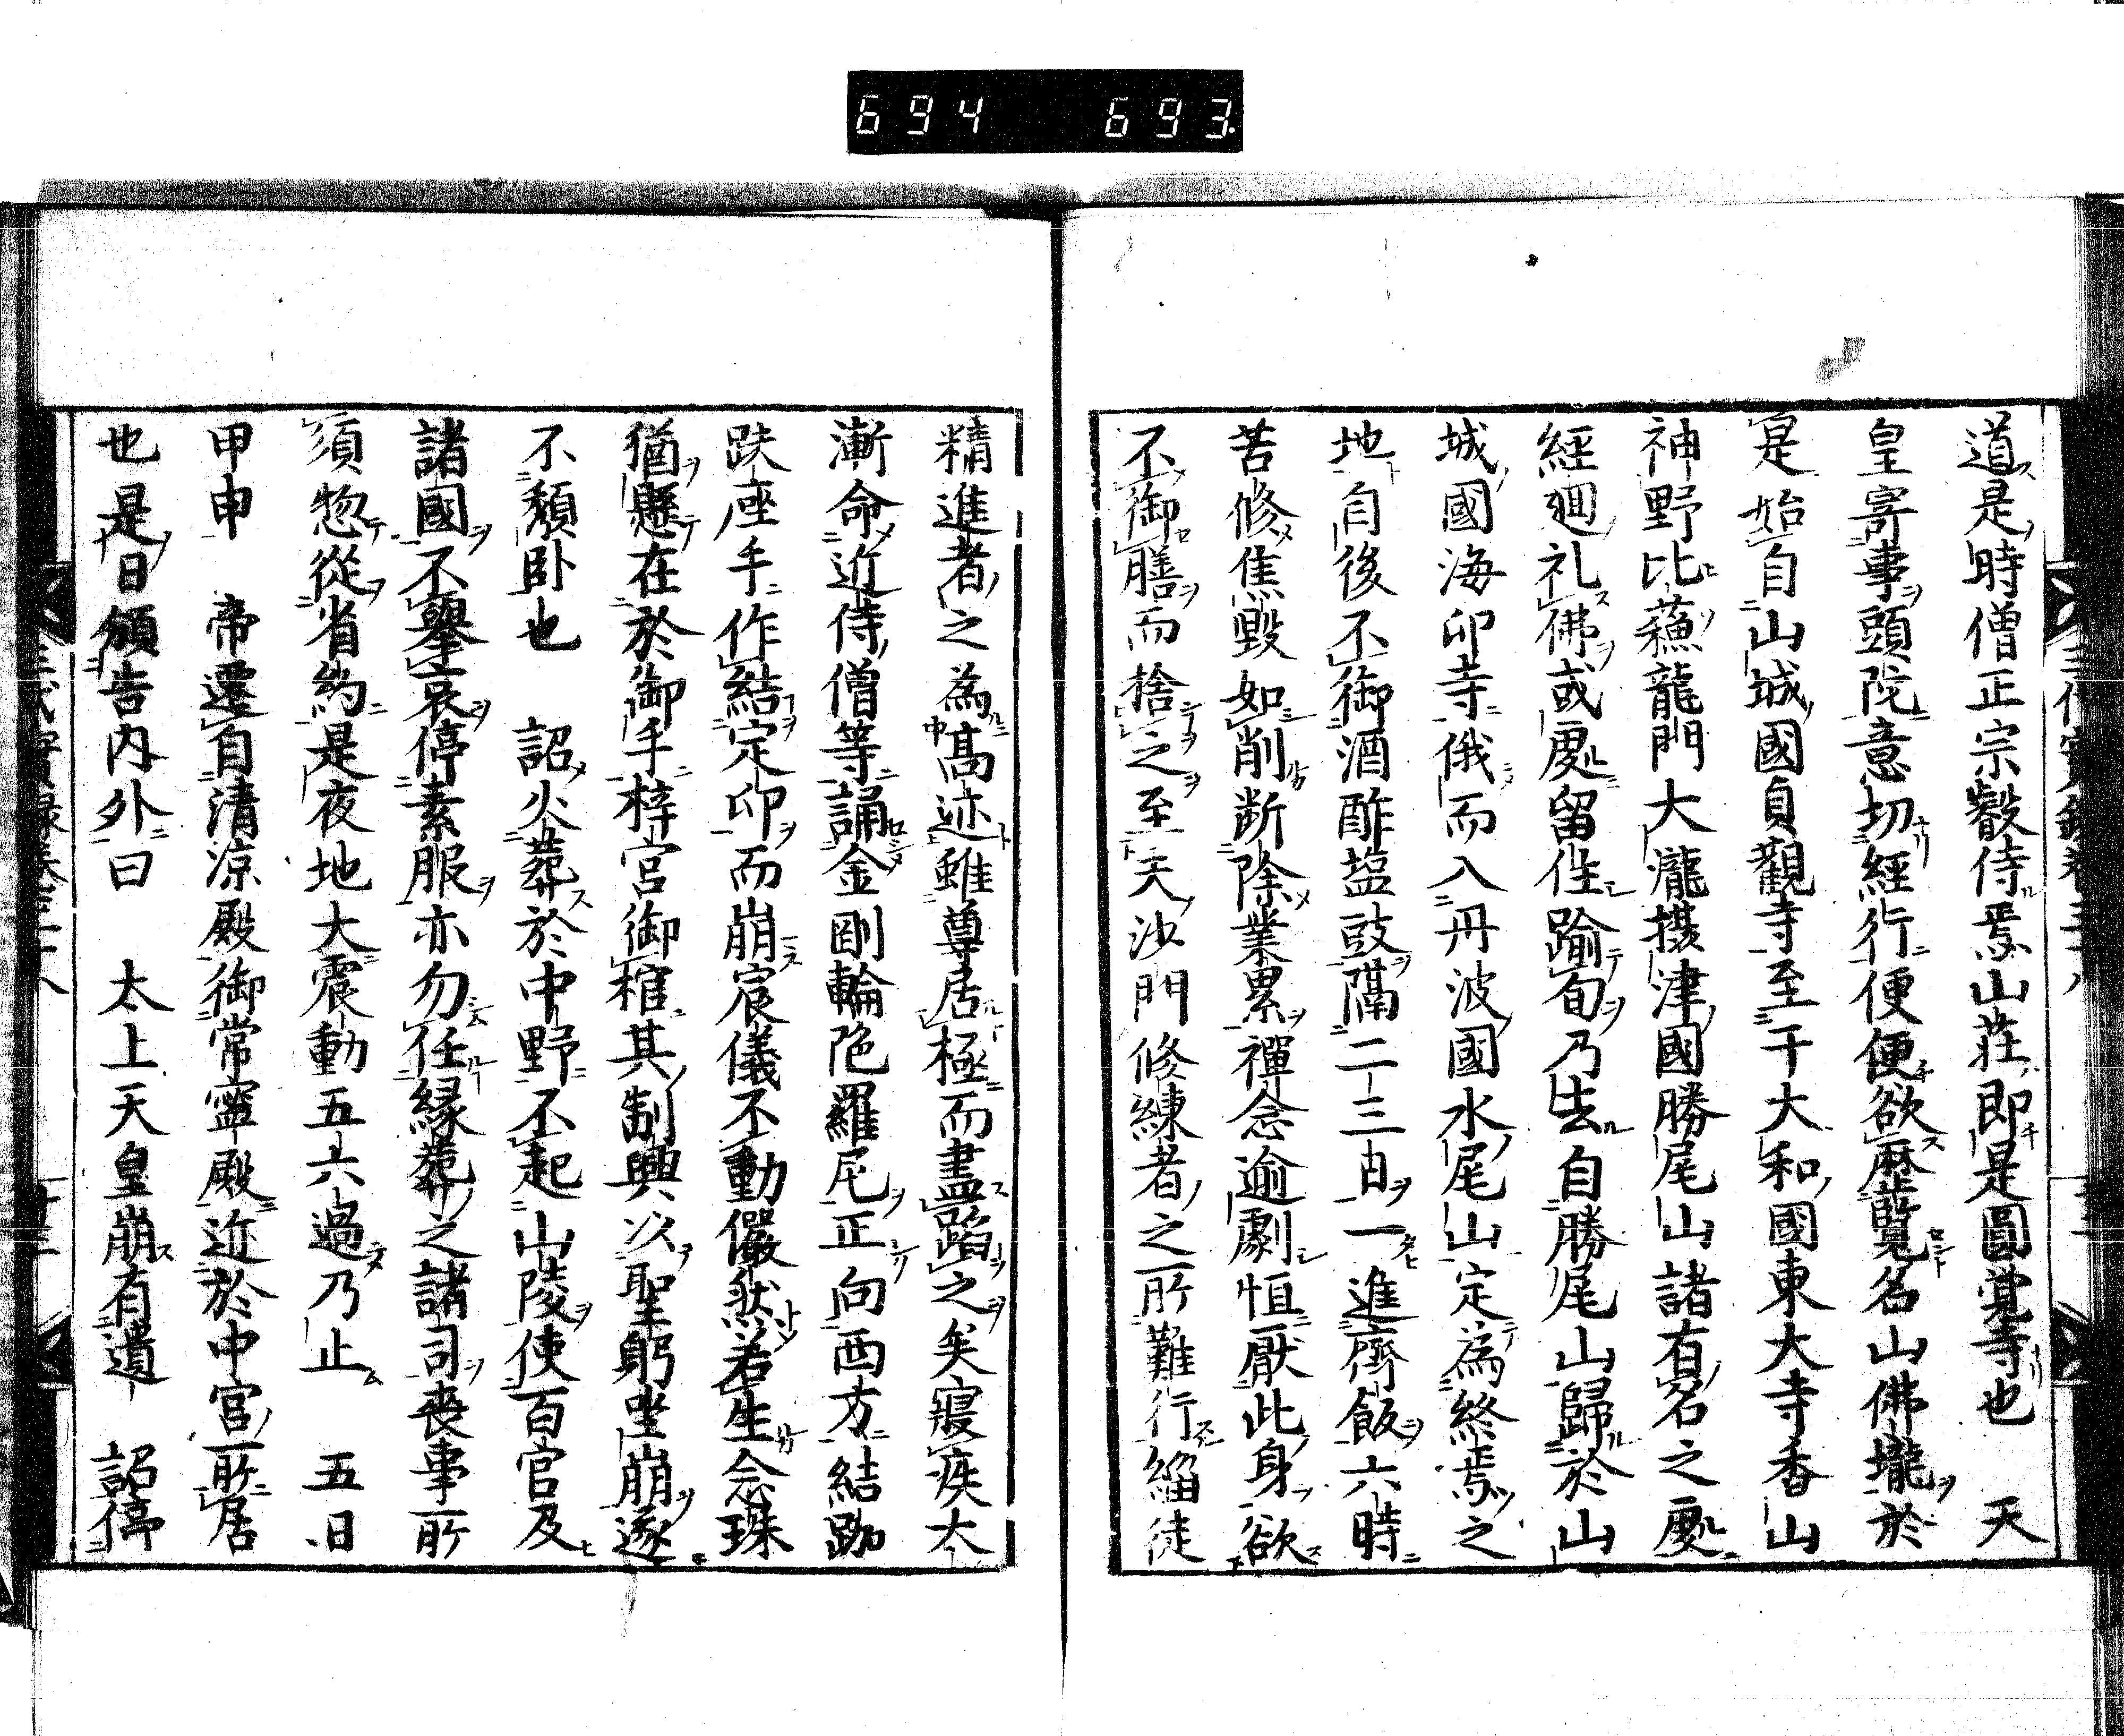 694 693
道是時僧正宗叡侍焉山莊即是圓覚寺也 天
皇寄事頭陀意切經行便便欲歴覽名山佛壠於
是始自山城國貞觀寺至于大和國東大寺香山
神野比蘓龍門大瀧攝津國勝尾山諸有名之處
經廻礼佛或處留住踰旬乃去自勝尾山歸於山
城國海印寺俄而入丹波國水尾山定為終焉之
地自後不御酒酢塩豉隔二三日一進齊飯六時
苦修焦毀如削断除業累禪念逾劇恒厭此身欲
不御膳而捨之至天沙門修練者之所難行緇徒
精進者之為髙迹雖尊居極而盡蹈之矣寝疾太
漸命近侍僧等誦金剛輪陁羅尼正向西方結跏
趺座手作結定印而崩宸儀不動儼然若生念珠
猶懸在於御手梓宮御棺其制輿以聖躬坐崩遂
不頽卧也 詔火葬於中野不起山陵使百官及
諸國不擧哀停素服亦勿任縁葬之諸司喪事所
須惣從省約是夜地大震動五六過乃止 五日
甲申 帝遷自清凉殿御常寧殿近於中宮所居
也是日頒告内外曰 太上天皇崩有遺 詔停